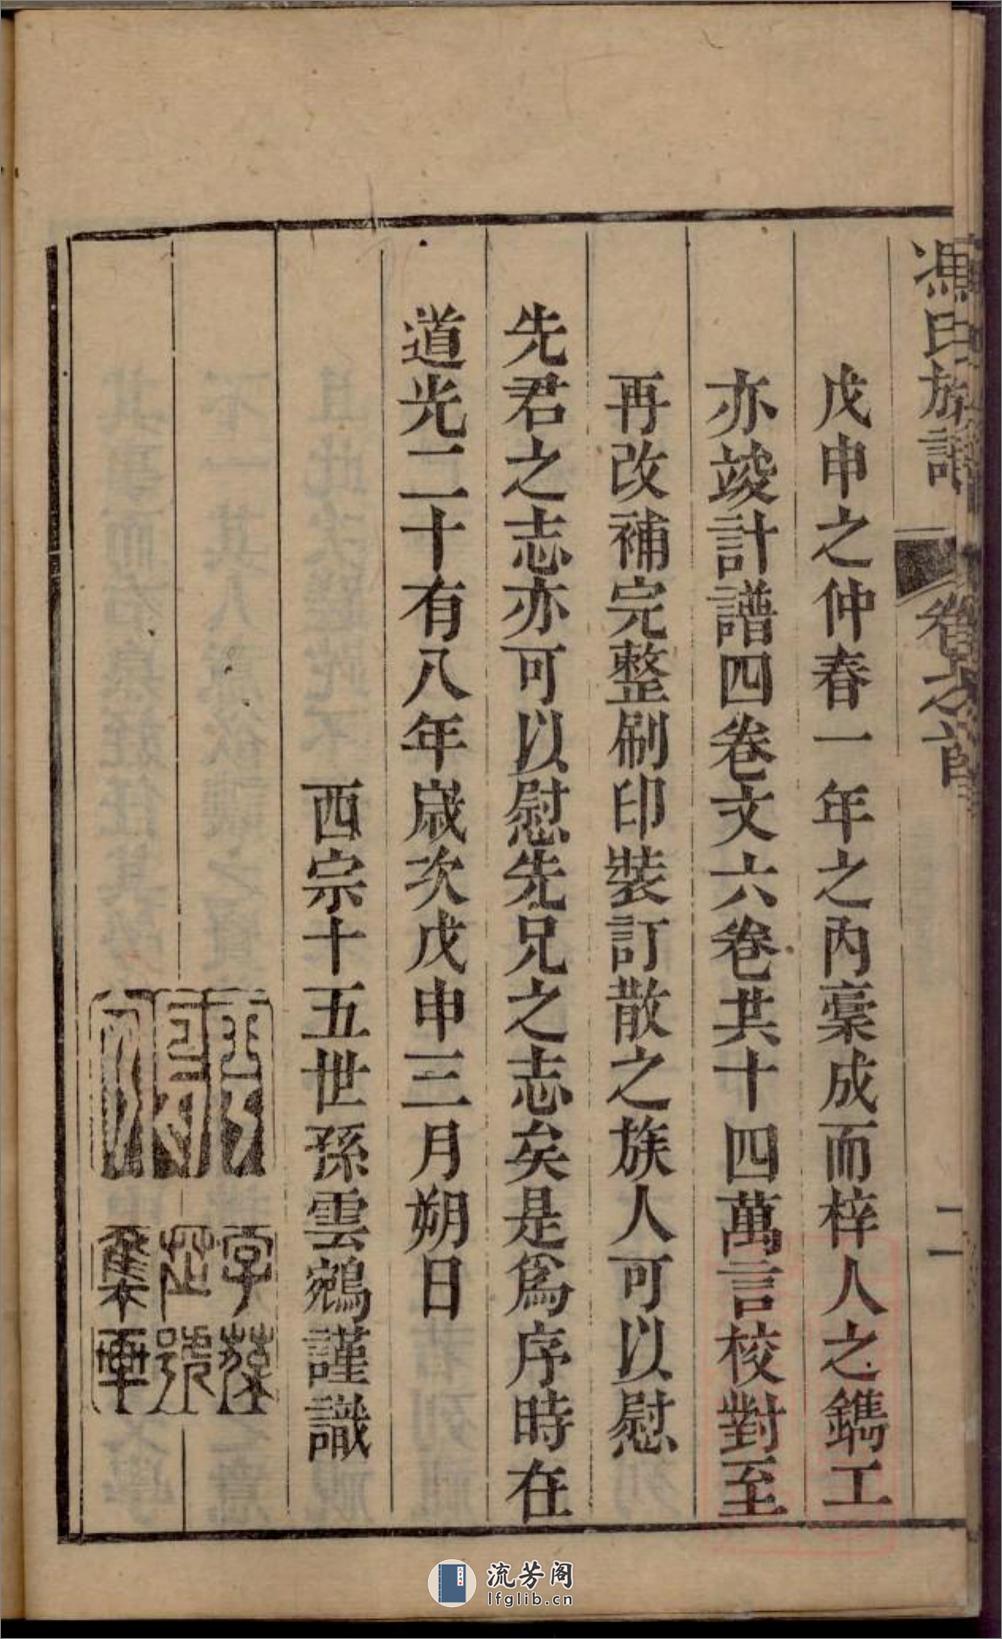 馮氏族譜 卷之首 二
戊申之仲春一年之內稾成而梓人之鐫工
亦竣計譜四卷文六卷共十四萬言校對至
再改補完整刷印裝訂散之族人可以慰
先君之志亦可以慰先兄之志矣是爲序時在
道光二十有八年歲次戊申三月朔日
西宗十五世孫雲鵷謹識
流芳阁
lfglib.cn